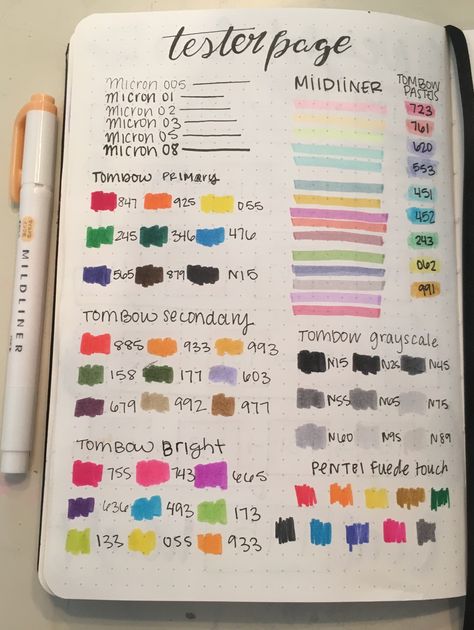 tester page
micron 005
micron 01
micron 02
micron 03
micron 05
micron 08
TOMBOW PRIMARY
847 925 055
245 346 476
565 879 N15
TOMBOW SECONDARY
885 933 993
158 177 603
679 992 977
TOMBOW BRIGHT
755 743 665
636 493 173
133 055 933
MIlDlINER
TOMBOW PASTELS
723
761
620
553
451
452
243
062
991
TOMBOW grayscale
N15 N25 N45
N55 N65 N75
N60 N95 N89
PENTEL FUEDE TOUCH
MILDLINER